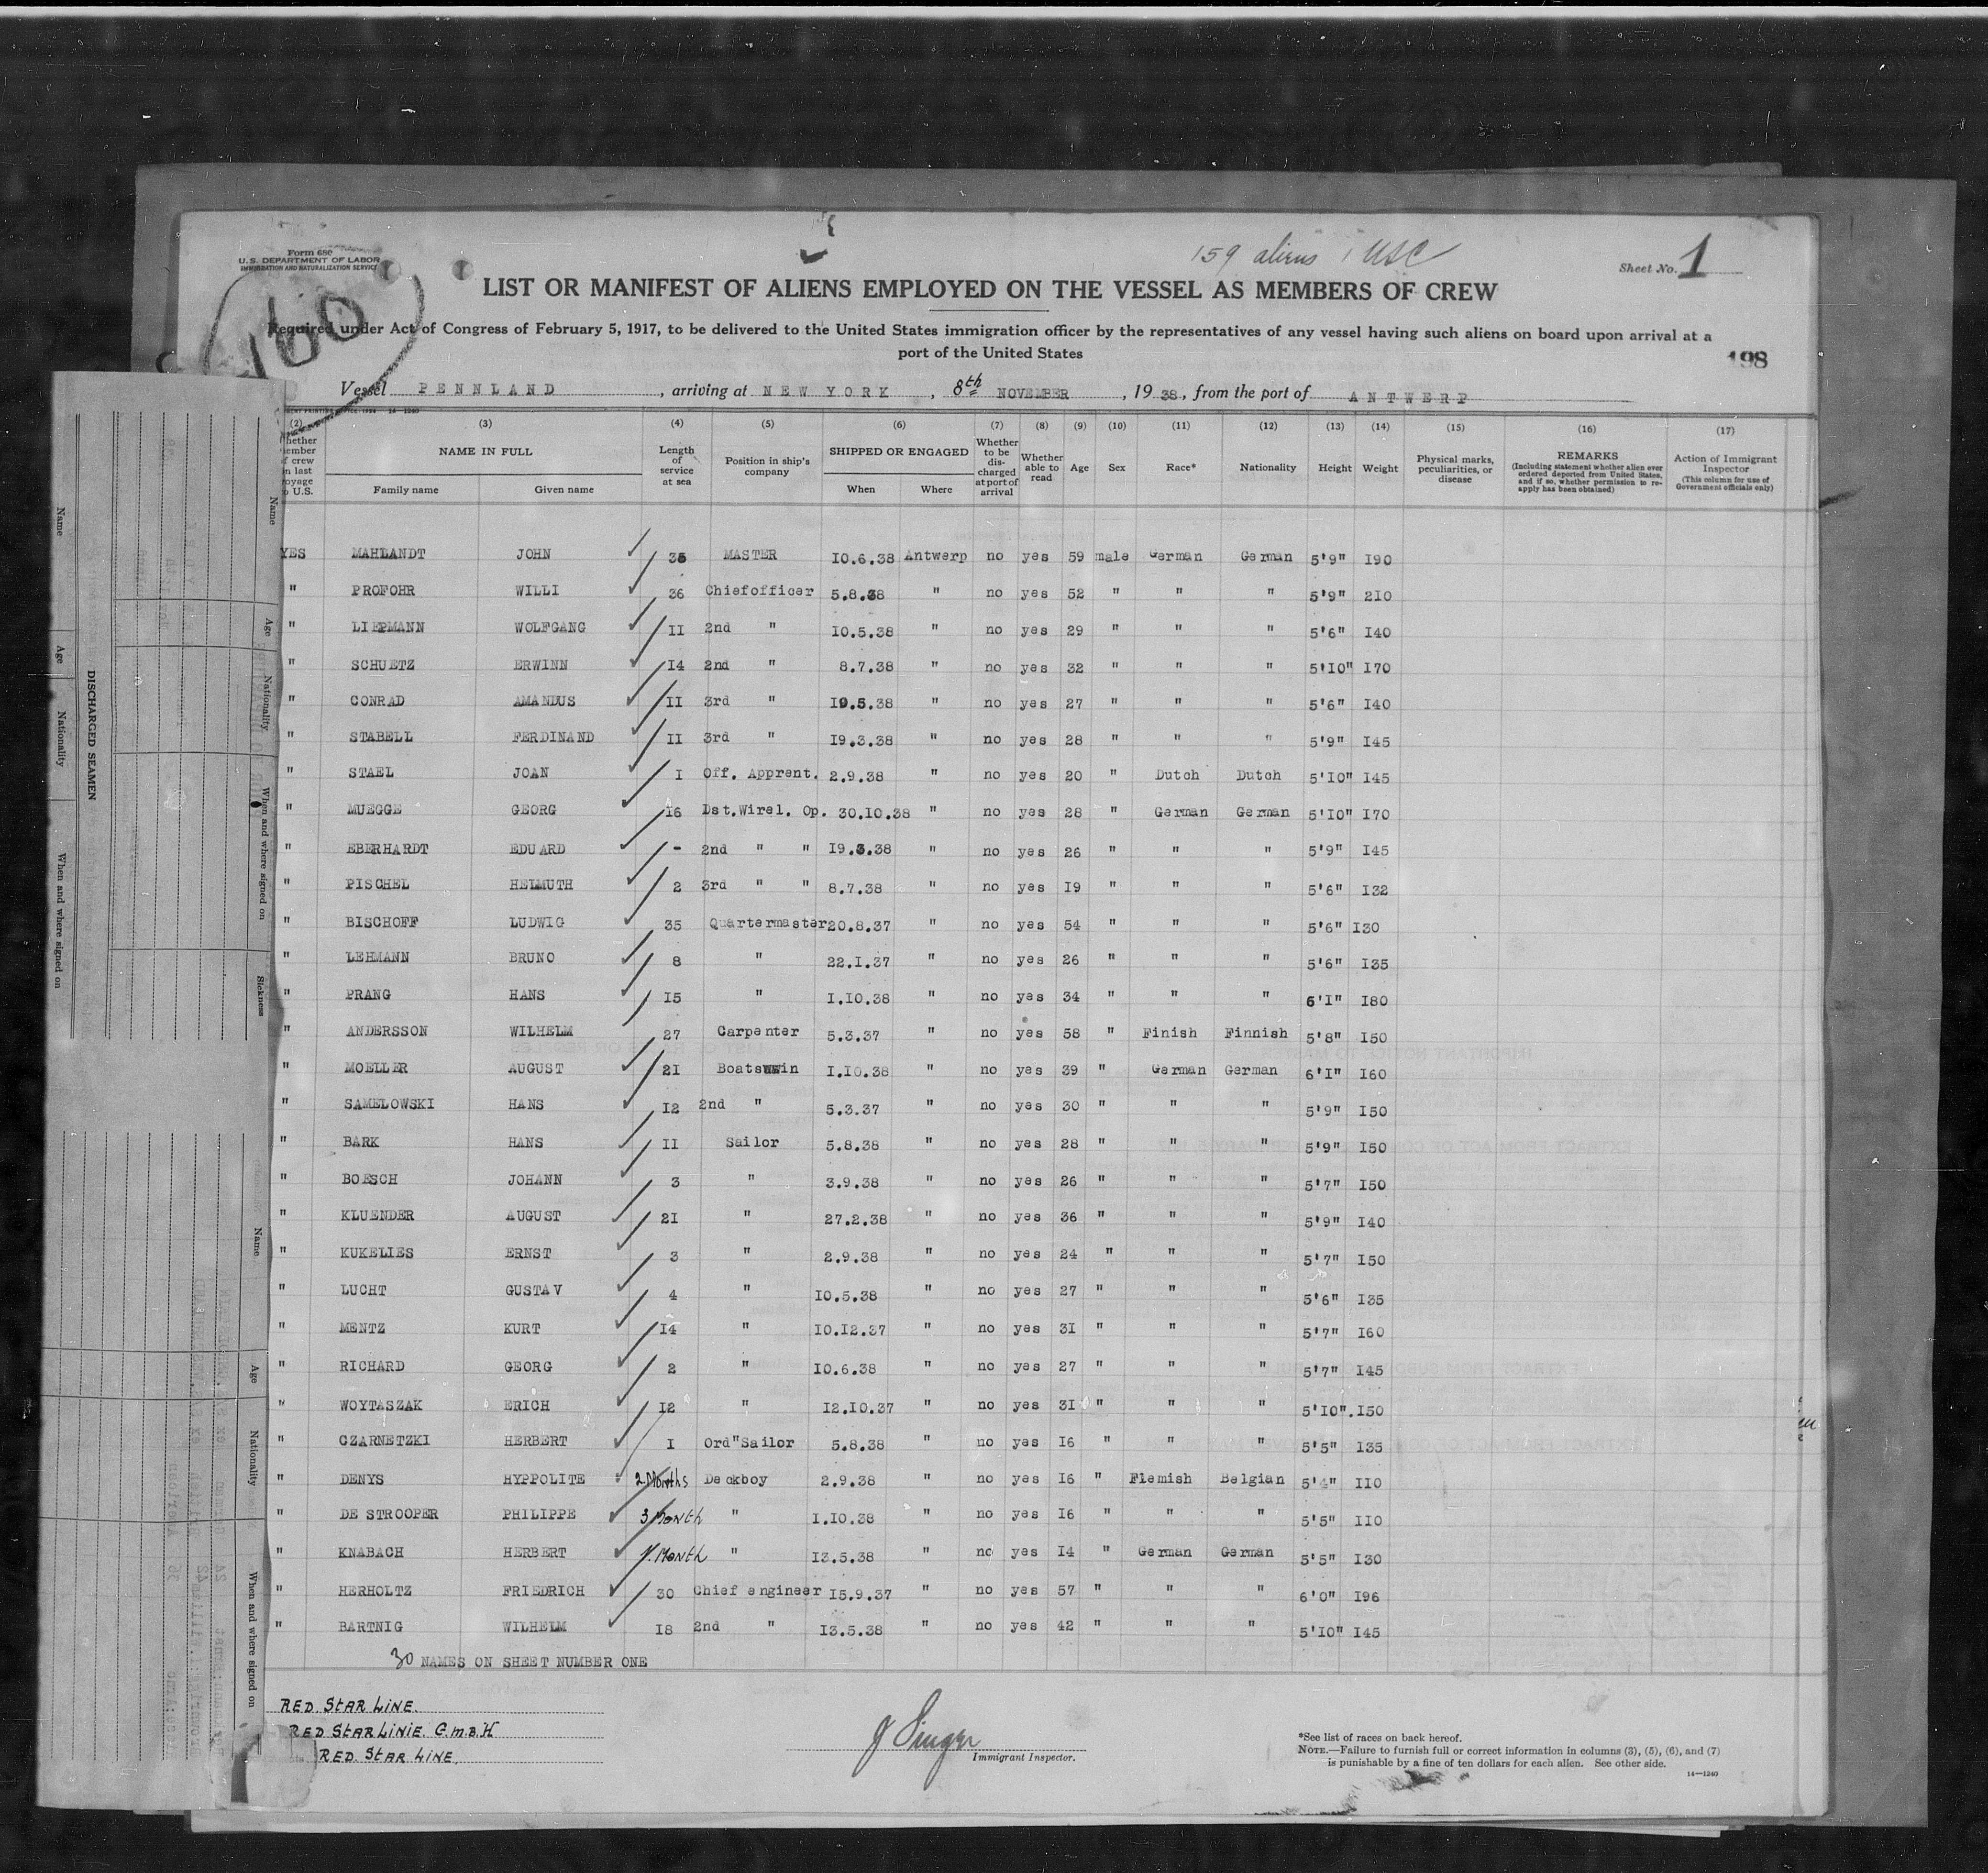 159 aliens 1 USC
Form 680
U.S. DEPARTMENT OF LABOR
IMMIGRATION AND NATURALIZATION SERVICE
Sheet No. 1
160
LIST OR MANIFEST OF ALIENS EMPLOYED ON THE VESSEL AS MEMBERS OF CREW
Required under Act of Congress of February 5, 1917, to be delivered to the United States immigration officer by the representatives of any vessel having such aliens on board upon arrival at a
port of the United States
198
Vessel PENNLAND, arriving at NEW YORK, 8th NOVEMBER, 1938, from the port of ANTWERP
(2) (3) (4) (5) (6) (7) (8) (9) (10) (11) (12) (13) (14) (15) (16) (17)
NAME IN FULL Family name Given name Length of service at sea Position in ship's company SHIPPED OR ENGAGED When Where Whether to be discharged at port of arrival Whether able to read Age Sex Race* Nationality Height Weight Physical marks, peculiarities, or disease REMARKS (Including statement whether alien ever ordered deported from United States, and if so, whether permission to re-apply has been obtained) Action of Immigrant Inspector (This column for use of Government officials only)
YES MAHLANDT JOHN 35 MASTER 10.6.38 Antwerp no yes 59 male German German 5'9" I90
" PROFOHR WILLI 36 Chiefofficer 5.8.38 " no yes 52 " " " 5'9" 2I0
" LIEPMANN WOLFGANG II 2nd " I0.5.38 " no yes 29 " " " 5'6" I40
" SCHUETZ ERWINN I4 2nd " 8.7.38 " no yes 32 " " " 5'I0" I70
" CONRAD AMANDUS II 3rd " I9.5.38 " no yes 27 " " " 5'6" I40
" STABELL FERDINAND II 3rd " I9.3.38 " no yes 28 " " " 5'9" I45
" STAEL JOAN I Off. Apprent. 2.9.38 " no yes 20 " Dutch Dutch 5'I0" I45
" MUEGGE GEORG I6 Ist.Wirel. Op. 30.I0.38 " no yes 28 " German German 5'I0" I70
" EBERHARDT EDUARD - 2nd " " I9.3.38 " no yes 26 " " " 5'9" I45
" PISCHEL HELMUTH 2 3rd " " 8.7.38 " no yes I9 " " " 5'6" I32
" BISCHOFF LUDWIG 35 Quartermaster 20.8.37 " no yes 54 " " " 5'6" I30
" LEHMANN BRUNO 8 " 22.I.37 " no yes 26 " " " 5'6" I35
" PRANG HANS I5 " I.I0.38 " no yes 34 " " " 6'I" I80
" ANDERSSON WILHELM 27 Carpenter 5.3.37 " no yes 58 " Finish Finnish 5'8" I50
" MOELLER AUGUST 2I Boatswain I.I0.38 " no yes 39 " German German 6'I" I60
" SAMELOWSKI HANS I2 2nd " 5.3.37 " no yes 30 " " " 5'9" I50
" BARK HANS II Sailor 5.8.38 " no yes 28 " " " 5'9" I50
" BOESCH JOHANN 3 " 3.9.38 " no yes 26 " " " 5'7" I50
" KLUENDER AUGUST 2I " 27.2.38 " no yes 36 " " " 5'9" I40
" KUKELIES ERNST 3 " 2.9.38 " no yes 24 " " " 5'7" I50
" LUCHT GUSTAV 4 " I0.5.38 " no yes 27 " " " 5'6" I35
" MENTZ KURT I4 " I0.I2.37 " no yes 3I " " " 5'7" I60
" RICHARD GEORG 2 " I0.6.38 " no yes 27 " " " 5'7" I45
" WOYTASZAK ERICH I2 " I2.I0.37 " no yes 3I " " " 5'I0". I50
" CZARNETZKI HERBERT I Ord"Sailor 5.8.38 " no yes I6 " " " 5'5" I35
" DENYS HYPPOLITE 2 Months Deckboy 2.9.38 " no yes I6 " Flemish Belgian 5'4" II0
" DE STROOPER PHILIPPE 3 Month " I.I0.38 " no yes I6 " " " 5'5" II0
" KNABACH HERBERT 1. Month " I3.5.38 " no yes I4 " German German 5'5" I30
" HERHOLTZ FRIEDRICH 30 Chief engineer I5.9.37 " no yes 57 " " " 6'0" I96
" BARTNIG WILHELM I8 2nd " I3.5.38 " no yes 42 " " " 5'I0" I45
30 NAMES ON SHEET NUMBER ONE
RED. STAR LINE.
RED STAR LINIE. G.M.B.H
RED. STAR LINE.
J Singer
Immigrant Inspector.
*See list of races on back hereof.
NOTE.—Failure to furnish full or correct information in columns (3), (5), (6), and (7)
is punishable by a fine of ten dollars for each alien. See other side.
14—1240
DISCHARGED SEAMEN
Name Age Nationality When and where signed on
Name Age Nationality When and where signed on Sickness
Name Age Nationality When and where signed on